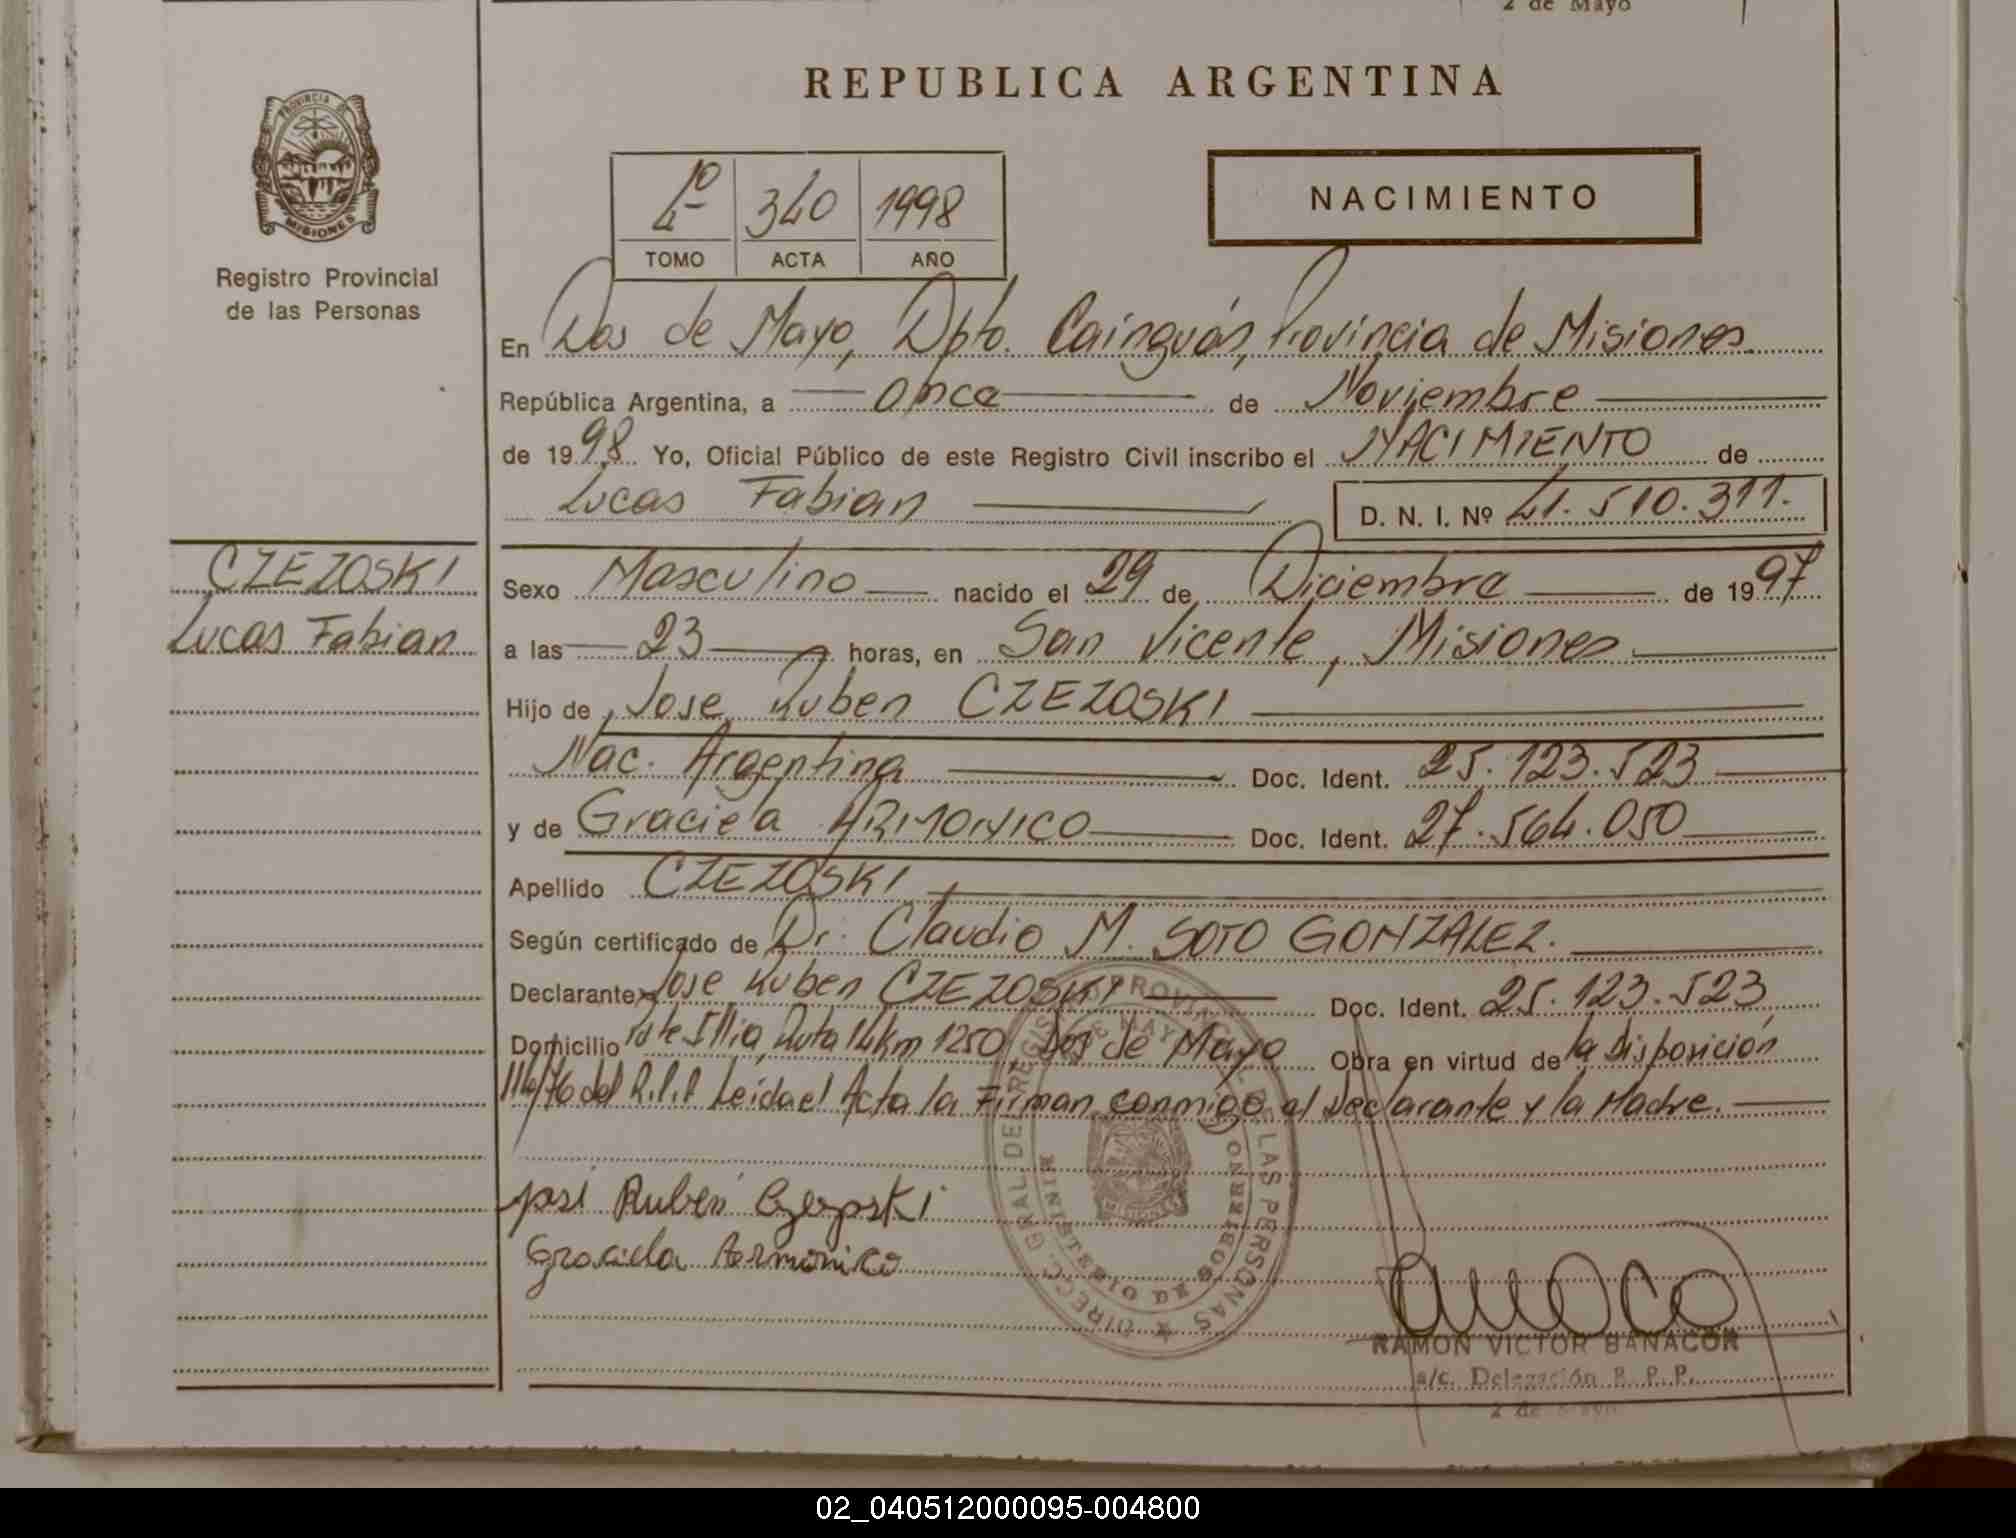 2 de Mayo
REPUBLICA ARGENTINA
PROVINCIA DE
MISIONES
Registro Provincial
de las Personas
4º 340 1998
TOMO ACTA AÑO
NACIMIENTO
En Dos de Mayo, Dpto. Cainguás, Provincia de Misiones
República Argentina, a once de Noviembre
de 1998 Yo, Oficial Público de este Registro Civil inscribo el NACIMIENTO de
Lucas Fabian D. N. I. Nº 41.510.311.
CZEZOSKI
Lucas Fabian
Sexo Masculino nacido el 29 de Diciembre de 1997
a las 23 horas, en San Vicente, Misiones
Hijo de Jose Ruben CZEZOSKI
Nac. Argentina Doc. Ident. 25.123.523
y de Graciela ARMONICO Doc. Ident. 27.564.050
Apellido CZEZOSKI
Según certificado de Dr. Claudio M. SOTO GONZALEZ.
Declarante Jose Ruben CZEZOSKI Doc. Ident. 25.123.523
Domicilio Pdte Illia, Ruta 14 km 1250 Dos de Mayo Obra en virtud de la Disposición
114/76 del R.P.P Leida el Acta la Firman conmigo el Declarante y la Madre.
José Rubén Czezoski
Graciela Armonico
DIRECC. GRAL DE REGISTRO PROVINCIAL DE LAS PERSONAS
MINISTERIO DE GOBIERNO
2 DE MAYO
RAMON VICTOR BANACOR
a/c. Delegación R. P. P.
2 de Mayo
02_040512000095-004800